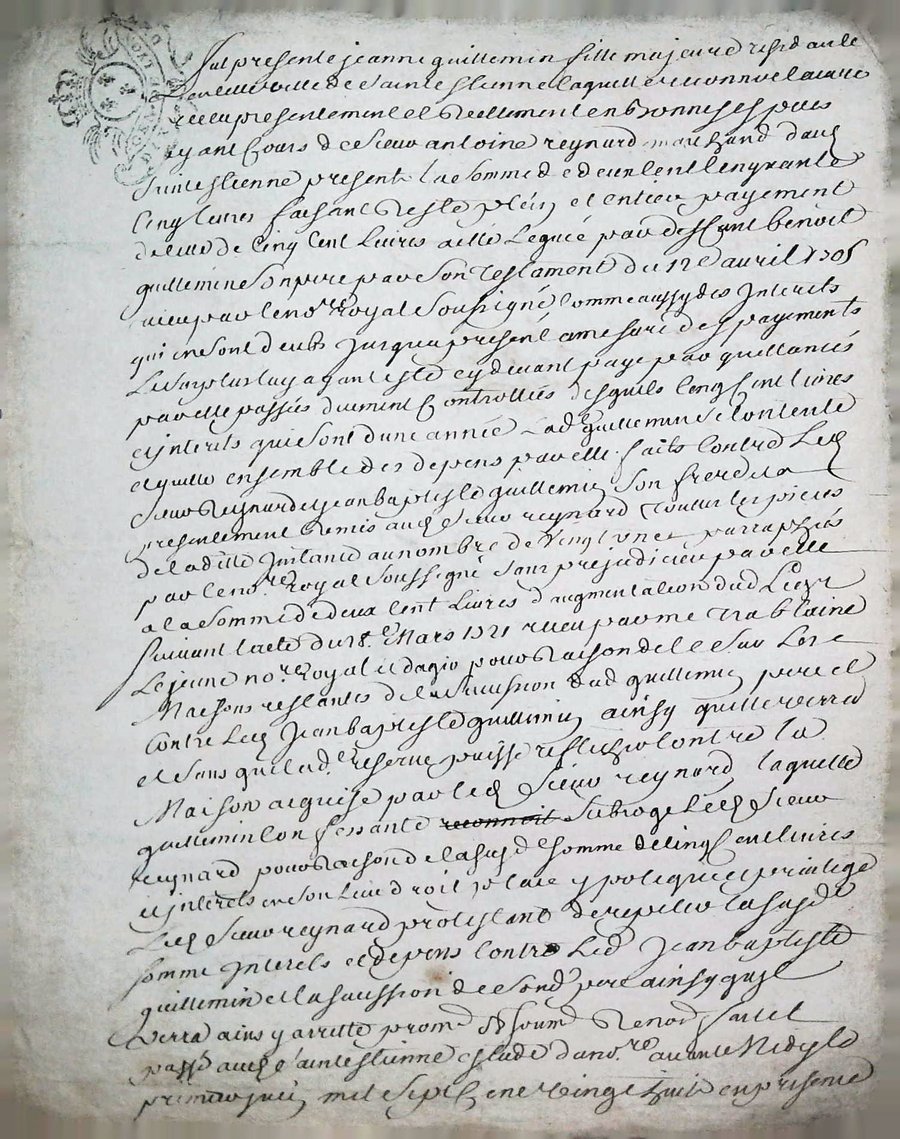 fut presente jeanne guillemin fille majeure residante
en cette ville de Sainte Estienne laquelle reconnoit avoir
receu presentement et reellement en bonnes especes
ayant cours de Sieur antoine reynard marchand dud
Saint estienne present la somme de deux cent cinquante
cinq livres faisant reste plein et entier payement
de celle de cinq cent livres a elle leguée par deffunt benoit
guillemin son pere par son testament du 12e avril 1705
receu par le nore royal soussigné comme aussy des Interets
qui en sont deubs jusqua present a mesure des payements
le surplus luy ayant esté cy devant payé par quittances
par elle passées duement controllées desquels cinq cent livres
et interets qui sont dune année lade guillemin se contente
et quitte ensemble des depens par elle faits contre led
Sieur Reynard et jean baptiste guillemin son frere
presentement remis aud Sieur reynard toutes les pieces
de la ditte Instance au nombre de vingt une parraphées
par le nore Royal soussigné sans prejudicier par elle
a la somme de deux cent livres d'augmentation dud Legat
suivant lacte du 28e Mars 1721 receu par me
Le jeune nore Royal pour raison de ce sur les
Maisons restantes de la sucession dud guillemin pere et
contre led Jean baptiste guillemin ainsy quelle verra
et sans que lade reserve puisse reflechir contre la
Maison acquise par led Sieur reynard laquelle
guillemin confessante reconnoit subroge led Sieur
reynard pour raison de la susd somme de cinq cent livres
et interets en son lieu droit place ypoteque et privilege
Led Sieur reynard protestant de repeter la susd
somme Interets et depens contre led Jean baptiste
guillemin et la sucession de sond pere ainsy quil
verra ainsy arretté prom &
passé aud Sainte Estienne estude dud nore avant Midy le
premier juin mil sept cent vingt huit en presence